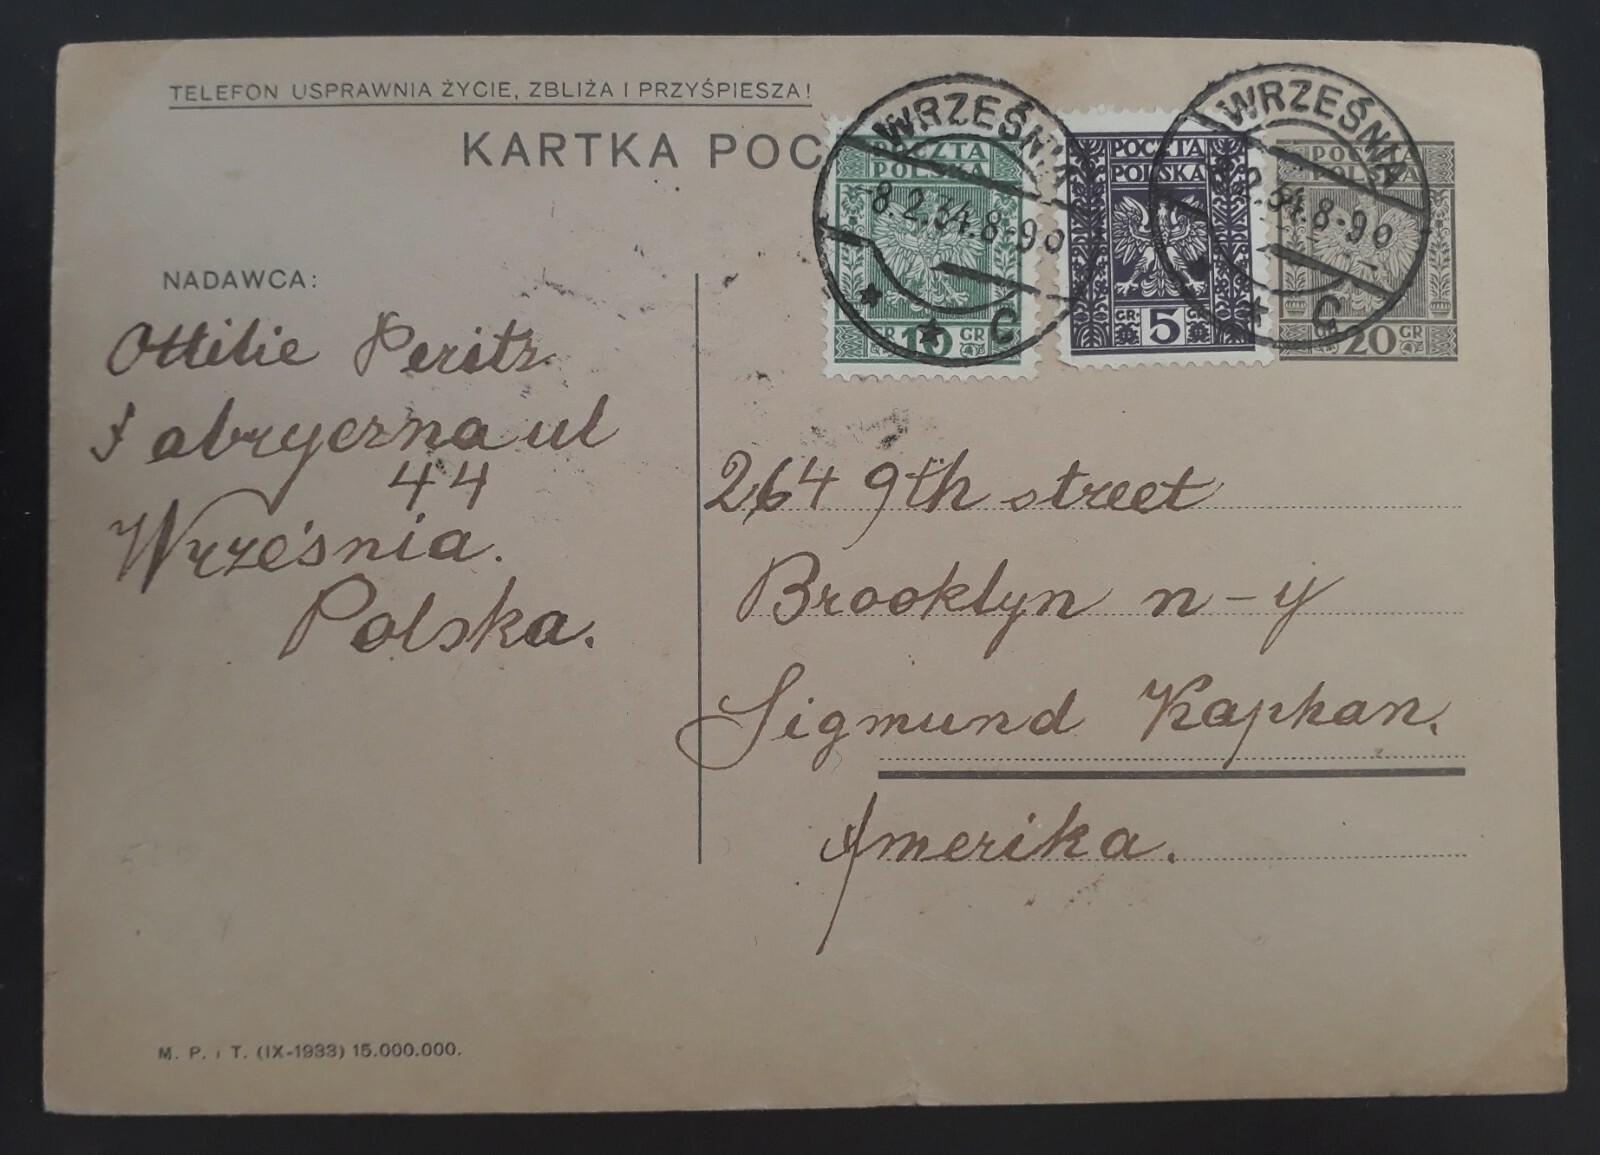 TELEFON USPRAWNIA ŻYCIE, ZBLIŻA I PRZYŚPIESZA!
KARTKA POC
WRZEŚNIA
-8.2.34.8-90
C
POCZTA
POLSKA
GR 10 GR
POCZTA
POLSKA
GR. 5 GR.
WRZEŚNIA
8.2.34.8-90
C
POCZTA
POLSKA
20 GR
NADAWCA:
Ottilie Peritz
Fabryczna ul
44
Września.
Polska.
264 9th street
Brooklyn n-y
Sigmund Kaphan.
Amerika.
M. P. i T. (IX-1933) 15.000.000.